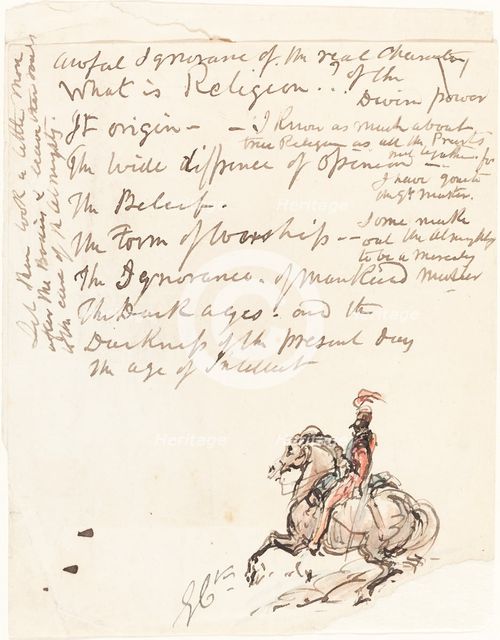 awful Ignorance of the real Character
of the
Divine power
What is Religion..?
It origin -
- I know as much about
true Religion as all the Priests
put together - for
I have gone to
the Gt Master.
The wide diffrence of Opinion -
The Belief.
The Form of Worship --
Some make
out the Almighty
to be a
The Ignorance. of Mankind
The Dark ages. and the
Darkness of the present day
the age of Intellect
Let them look a little more
after the & leave other ones
to the care of the Almighty
Heritage